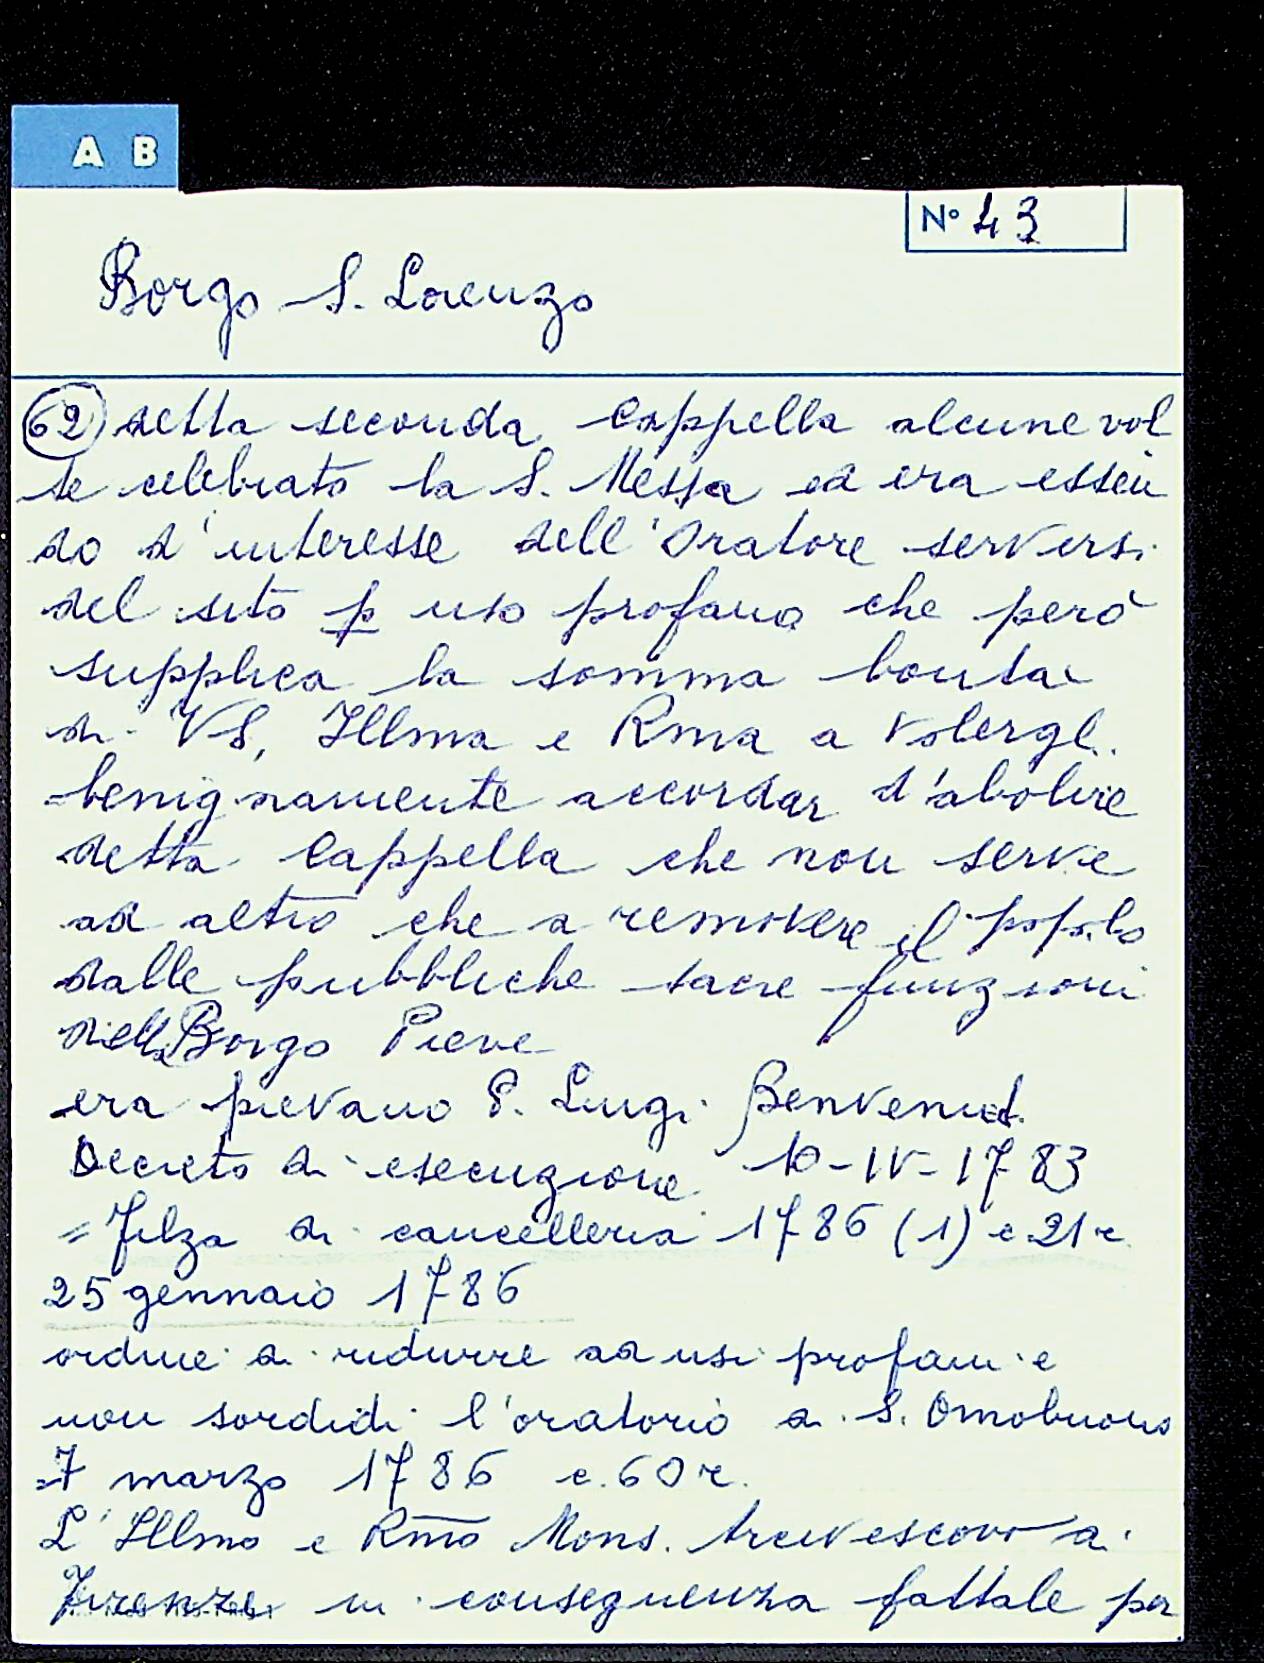 A B
N° 43
Borgo S. Lorenzo
62 detta seconda Cappella alcune vol
te celebrato la S. Messa ed era essen
do d'interesse dell'Oratore servirsi
del sito p uso profano che però
supplica la somma bontà
di VS, Illma e Rma a volergli
benignamente accordar d'abolire
detta Cappella che non serve
ad altro che a removere il popolo
dalle pubbliche sacre funzioni
della Borgo Pieve
era pievano P. Luigi Benvenuti
Decreto di esecuzione 10-IV-1783
= Filza di cancelleria 1786 (1) c 21 r
25 gennaio 1786
ordine di ridurre ad usi profani e
non sordidi l'oratorio di S. Omobuono
=7 marzo 1786 c. 60 r.
L'Illmo e Rmo Mons. Arcivescovo di
Firenze in conseguenza fattale per